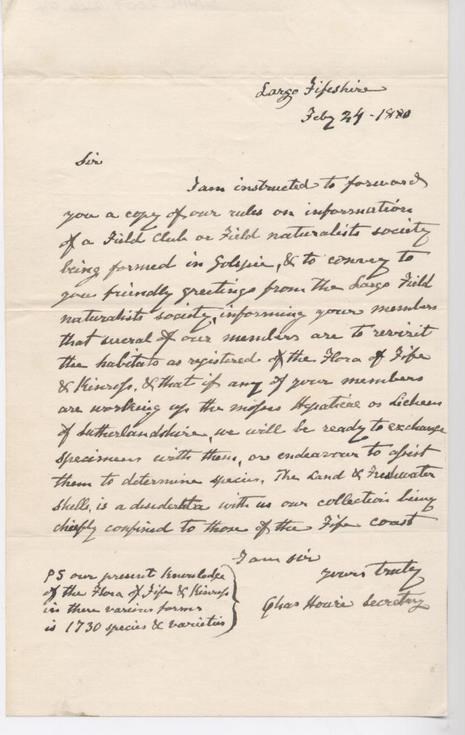 Largo Fifeshire
Feby 24 - 1880
Sir
I am instructed to forward
you a copy of our rules on information
of a Field Club or Field naturalists society
being formed in Golspie, & to convey to
you friendly greetings from the Largo Field
naturalists society, informing your members
that sueral of our members are to revisit
the habitats as registered of the Flora of Fife
& Kinross, & that if any of your members
are working up the mosses Hepaticae or Lichens
of Sutherlandshire, we will be ready to exchange
specimens with them, or endeavour to assist
them to determine species, The Land & Freshwater
shells, is a desiderata with us our collection being
chiefly confined to those of the Fife coast
I am sir
yours truly
Chas Howie Secretary
PS our present knowledge
of the Flora of Fife & Kinross
in there various forms
is 1730 species & varieties